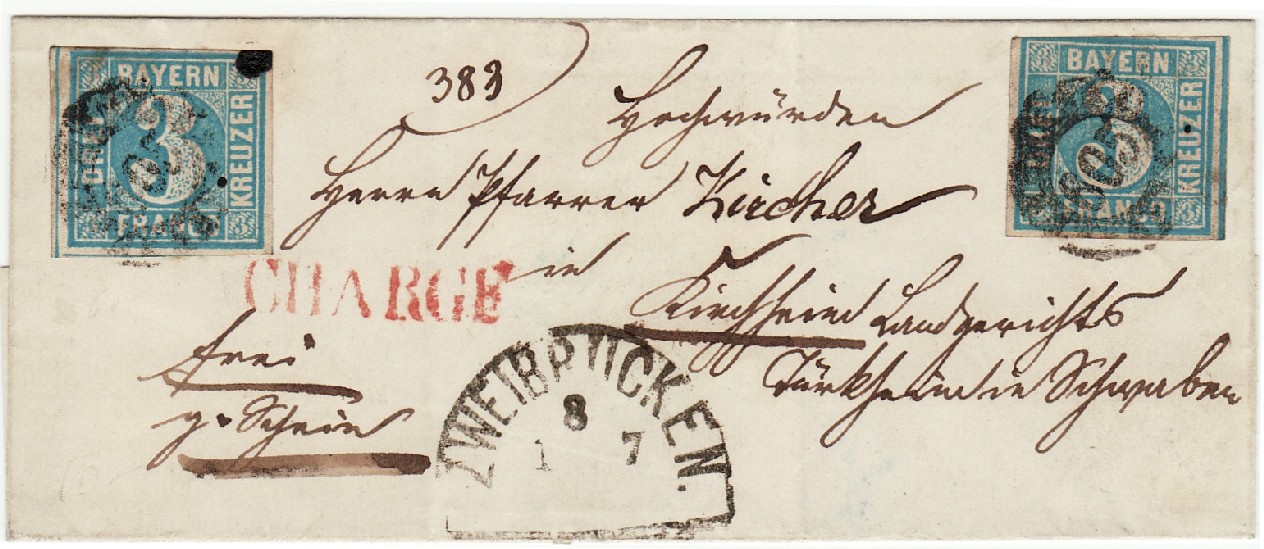 BAYERN
DREI
KREUZER
FRANCO
3
BAYERN
DREI
KREUZER
FRANCO
3
383
Hochwürden
Herrn Pfarrer Kircher
in
CHARGE
Kirchheim Landgerichts
Türkheim in Schwaben
frei
g. Schein
ZWEIBRÜCKEN.
8
1 7